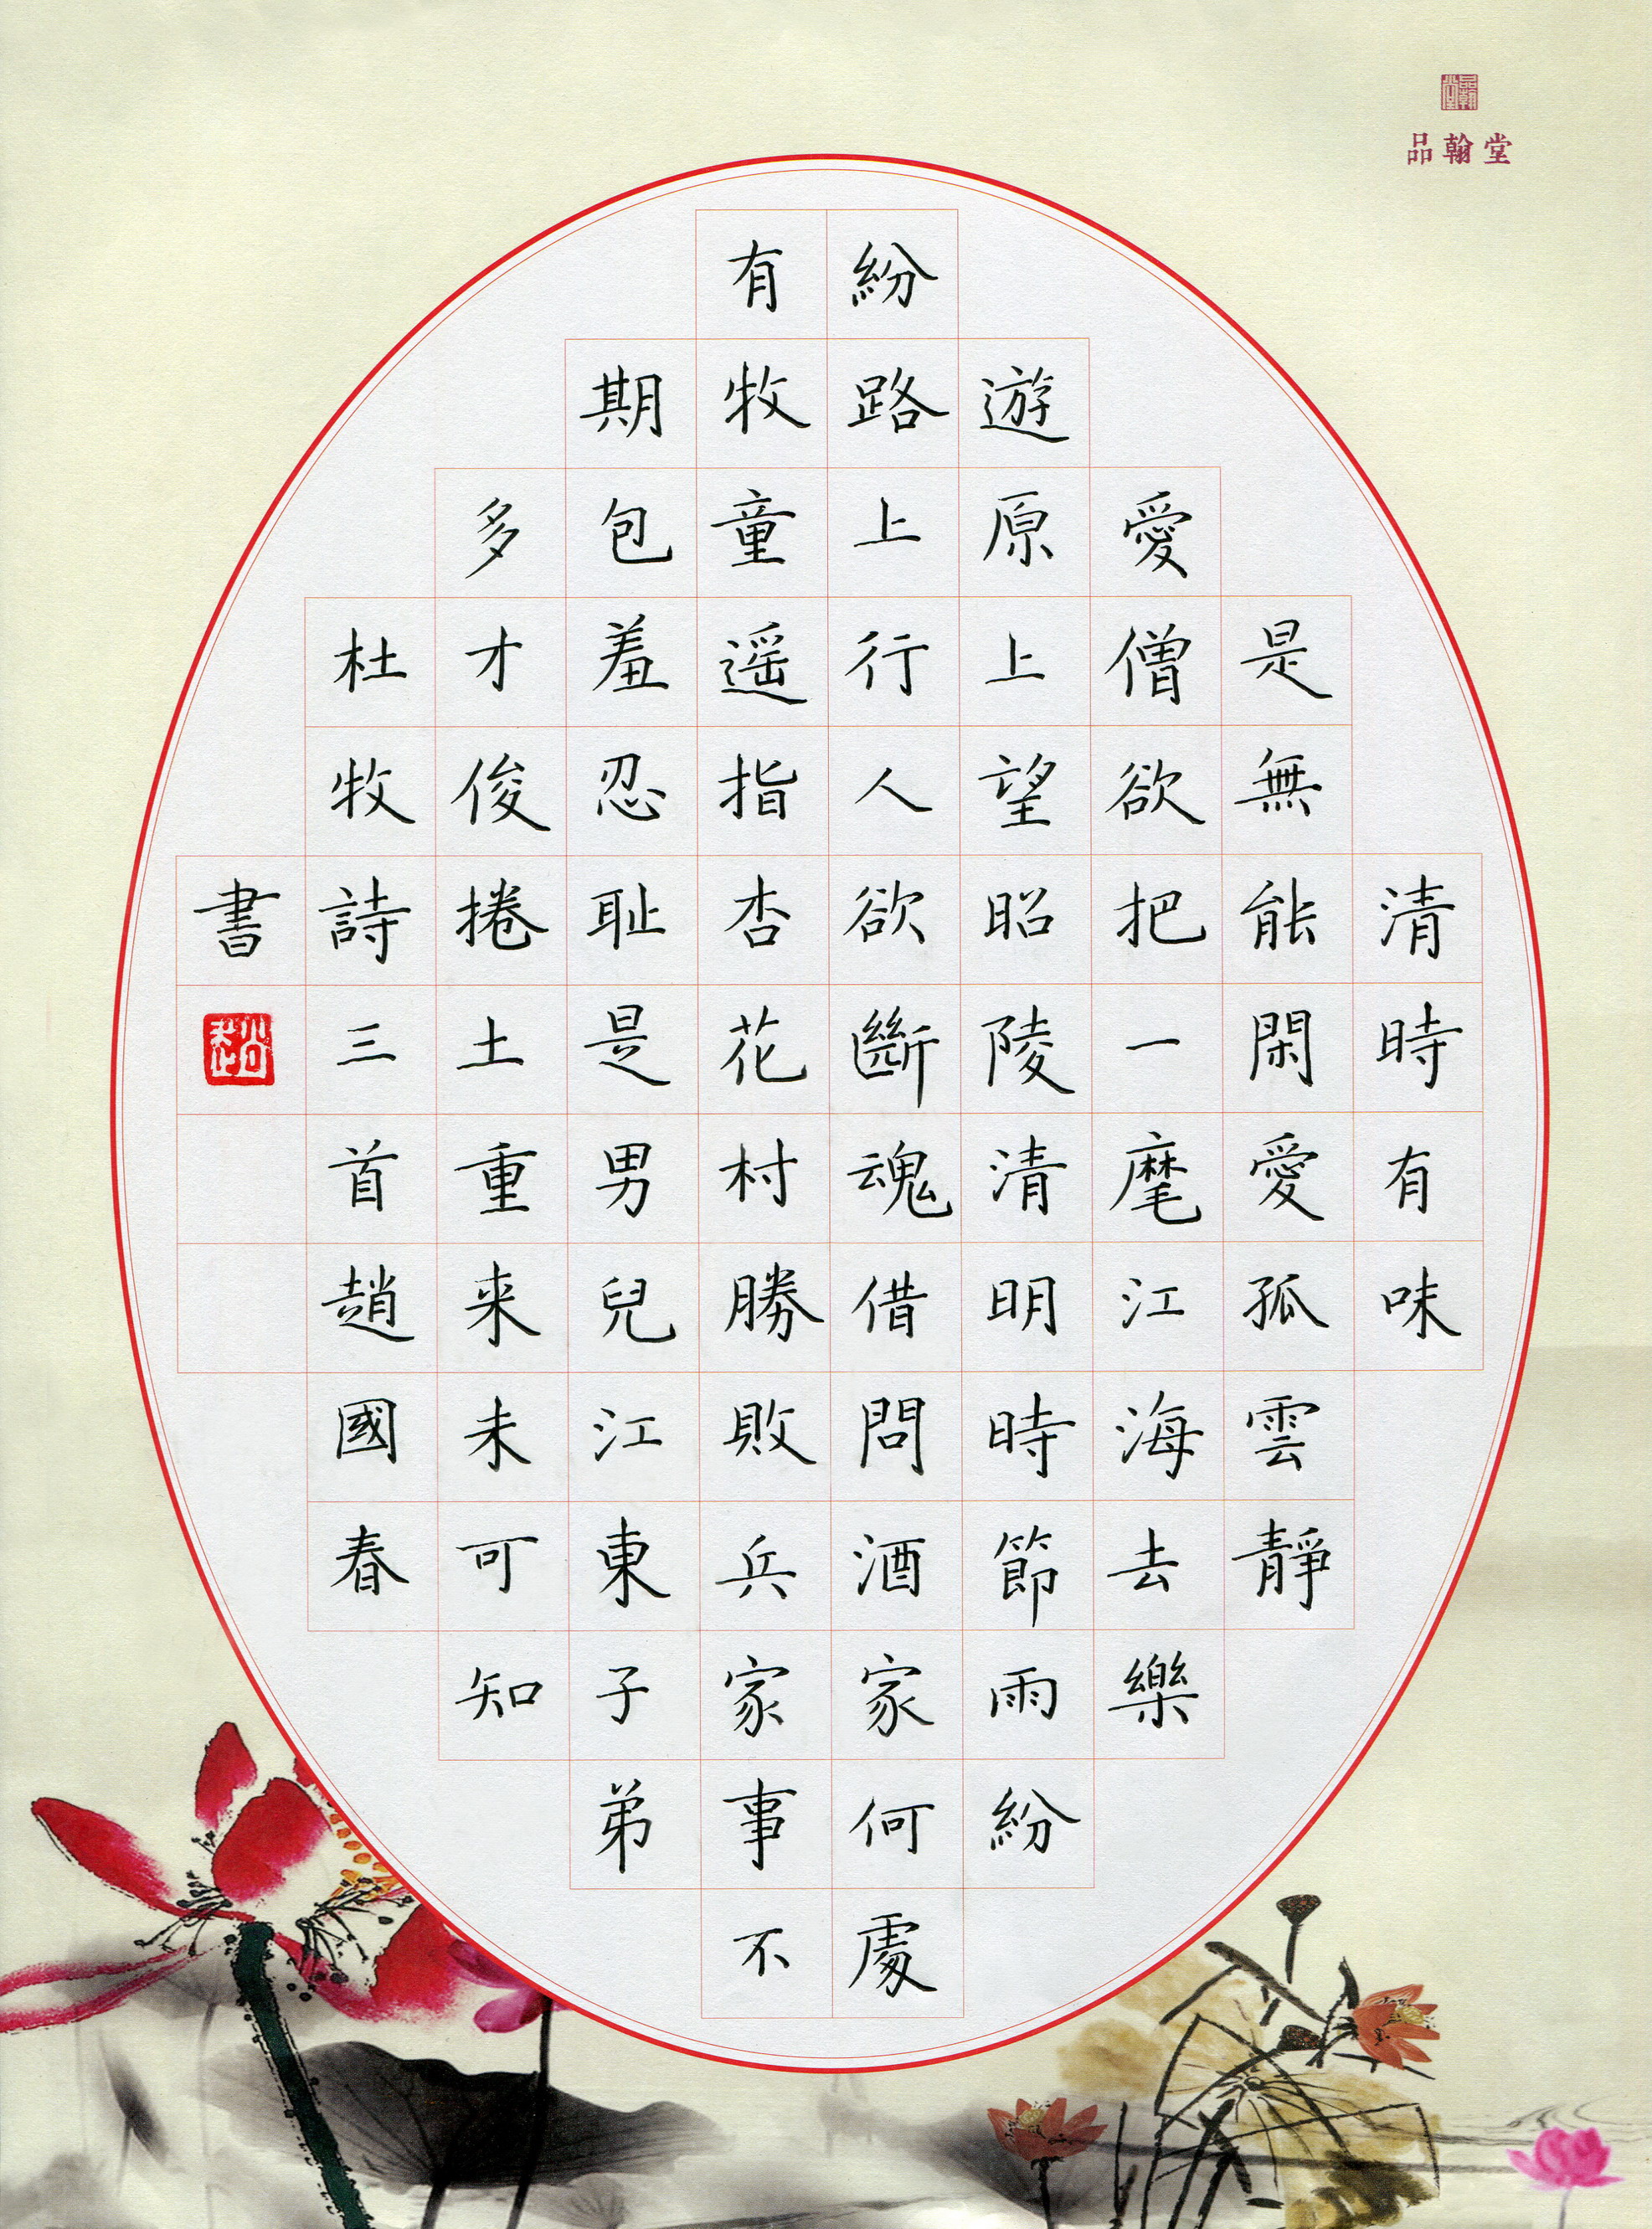 品翰堂
清時有味
是無能閑愛孤雲靜
愛僧欲把一麾江海去樂
遊原上望昭陵清明時節雨紛
紛路上行人欲斷魂借問酒家何處
有牧童遥指杏花村勝敗兵家事不
期包羞忍耻是男兒江東子弟
多才俊捲土重来未可知
杜牧詩三首趙國春
書